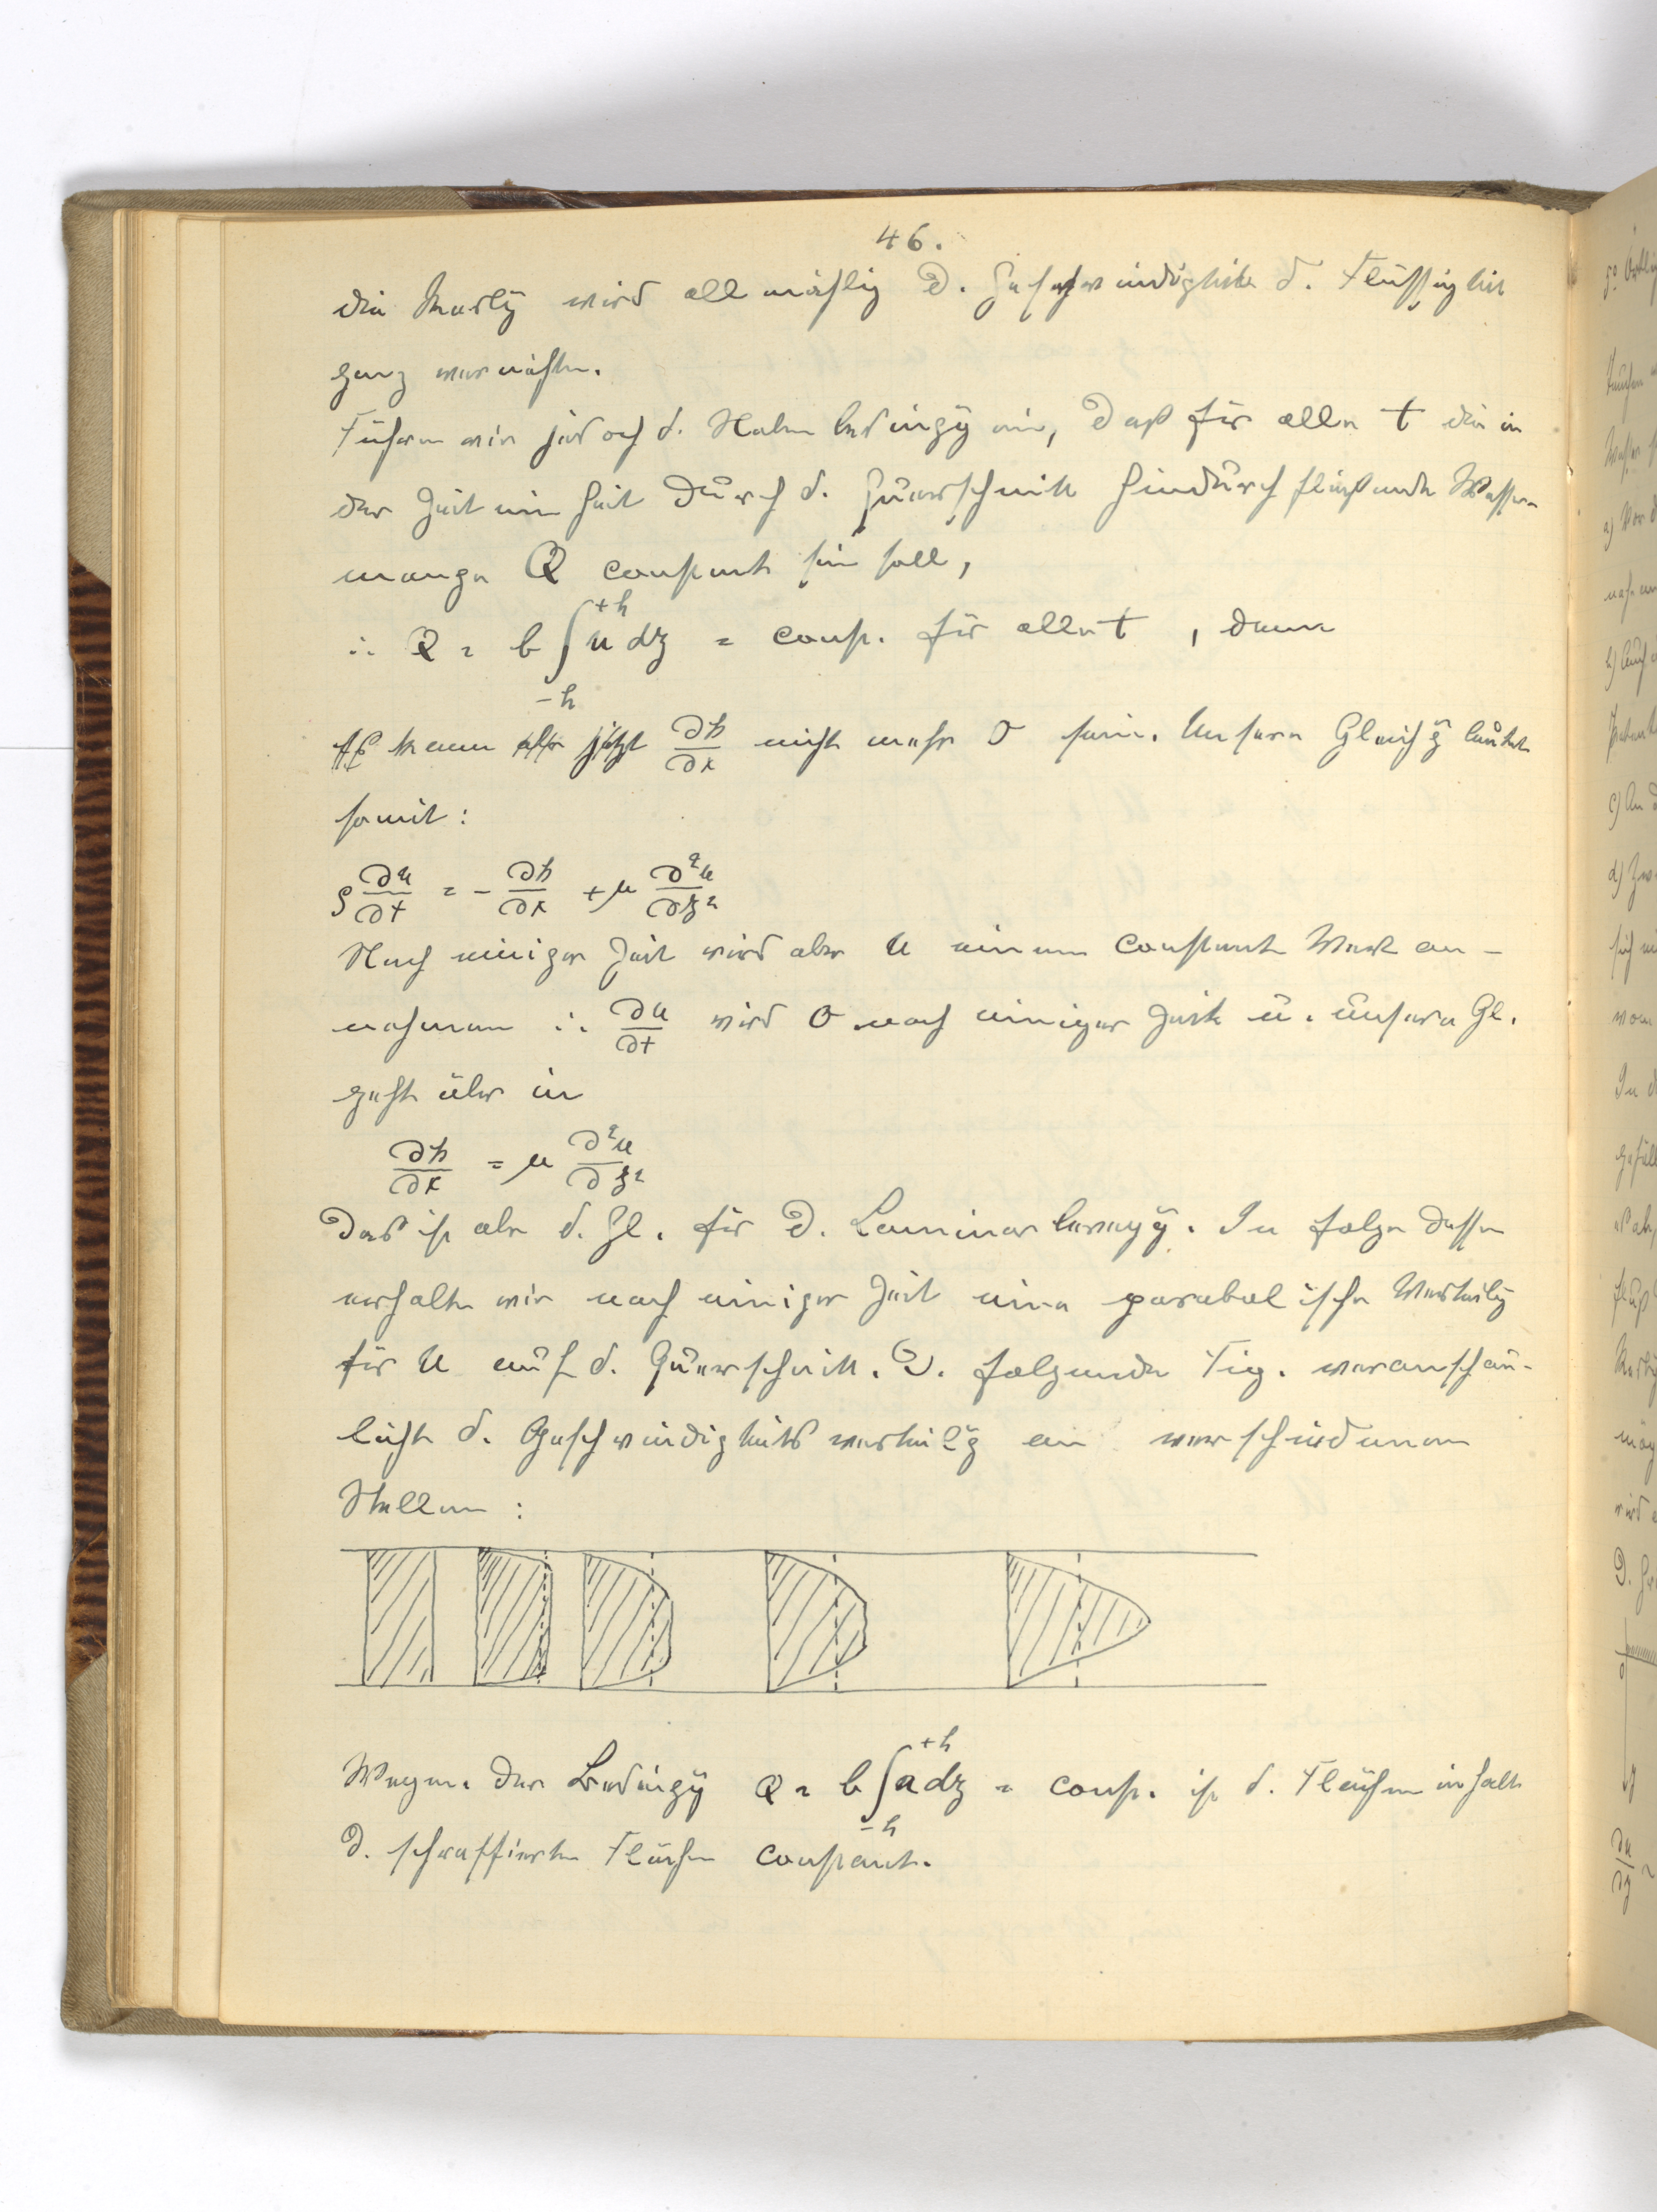 46.
die Reibg wird allmählig d. Geschwindigkeit d. Flüssigkeit
ganz vernichten.
Führen wir jedoch d. Nebenbedingg ein, daß für alle t die in
der Zeiteinheit durch d. Querschnitt hindurchfließende Wasser-
menge Q constant sein soll,
∴ Q = b ∫₋ₕ⁺ʰ u dz = const. für alle t, dann
kann jetzt ∂p/∂x nicht mehr 0 sein. Unsere Gleichg lautet
somit:
ρ ∂u/∂t = - ∂p/∂x + μ ∂²u/∂z²
Nach einiger Zeit wird aber u einen constant Wert an-
nehmen ∴ ∂u/∂t wird 0 nach einiger Zeit u. unsere Gl.
geht über in
∂p/∂x = μ ∂²u/∂z²
Das ist aber d. Gl. für d. Laminarbewegg. In folge dessen
erhalten wir nach einiger Zeit eine parabolische Verteilg
für u auf d. Querschnitt. D. folgende Fig. veranschau-
licht d. Geschwindigkeitsverteilg an verschiedenen
Stellen:
Wegen der Bedingg Q = b ∫₋ₕ⁺ʰ u dz = const. ist d. Flächeninhalt
d. schraffierten Flächen constant.